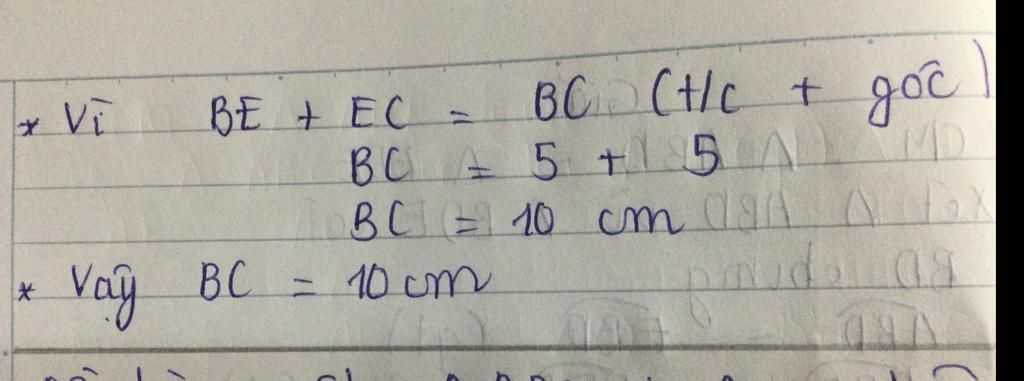 * Vì BE + EC = BC (t/c + góc)
BC = 5 + 5
BC = 10 cm
* Vaỹ BC = 10 cm